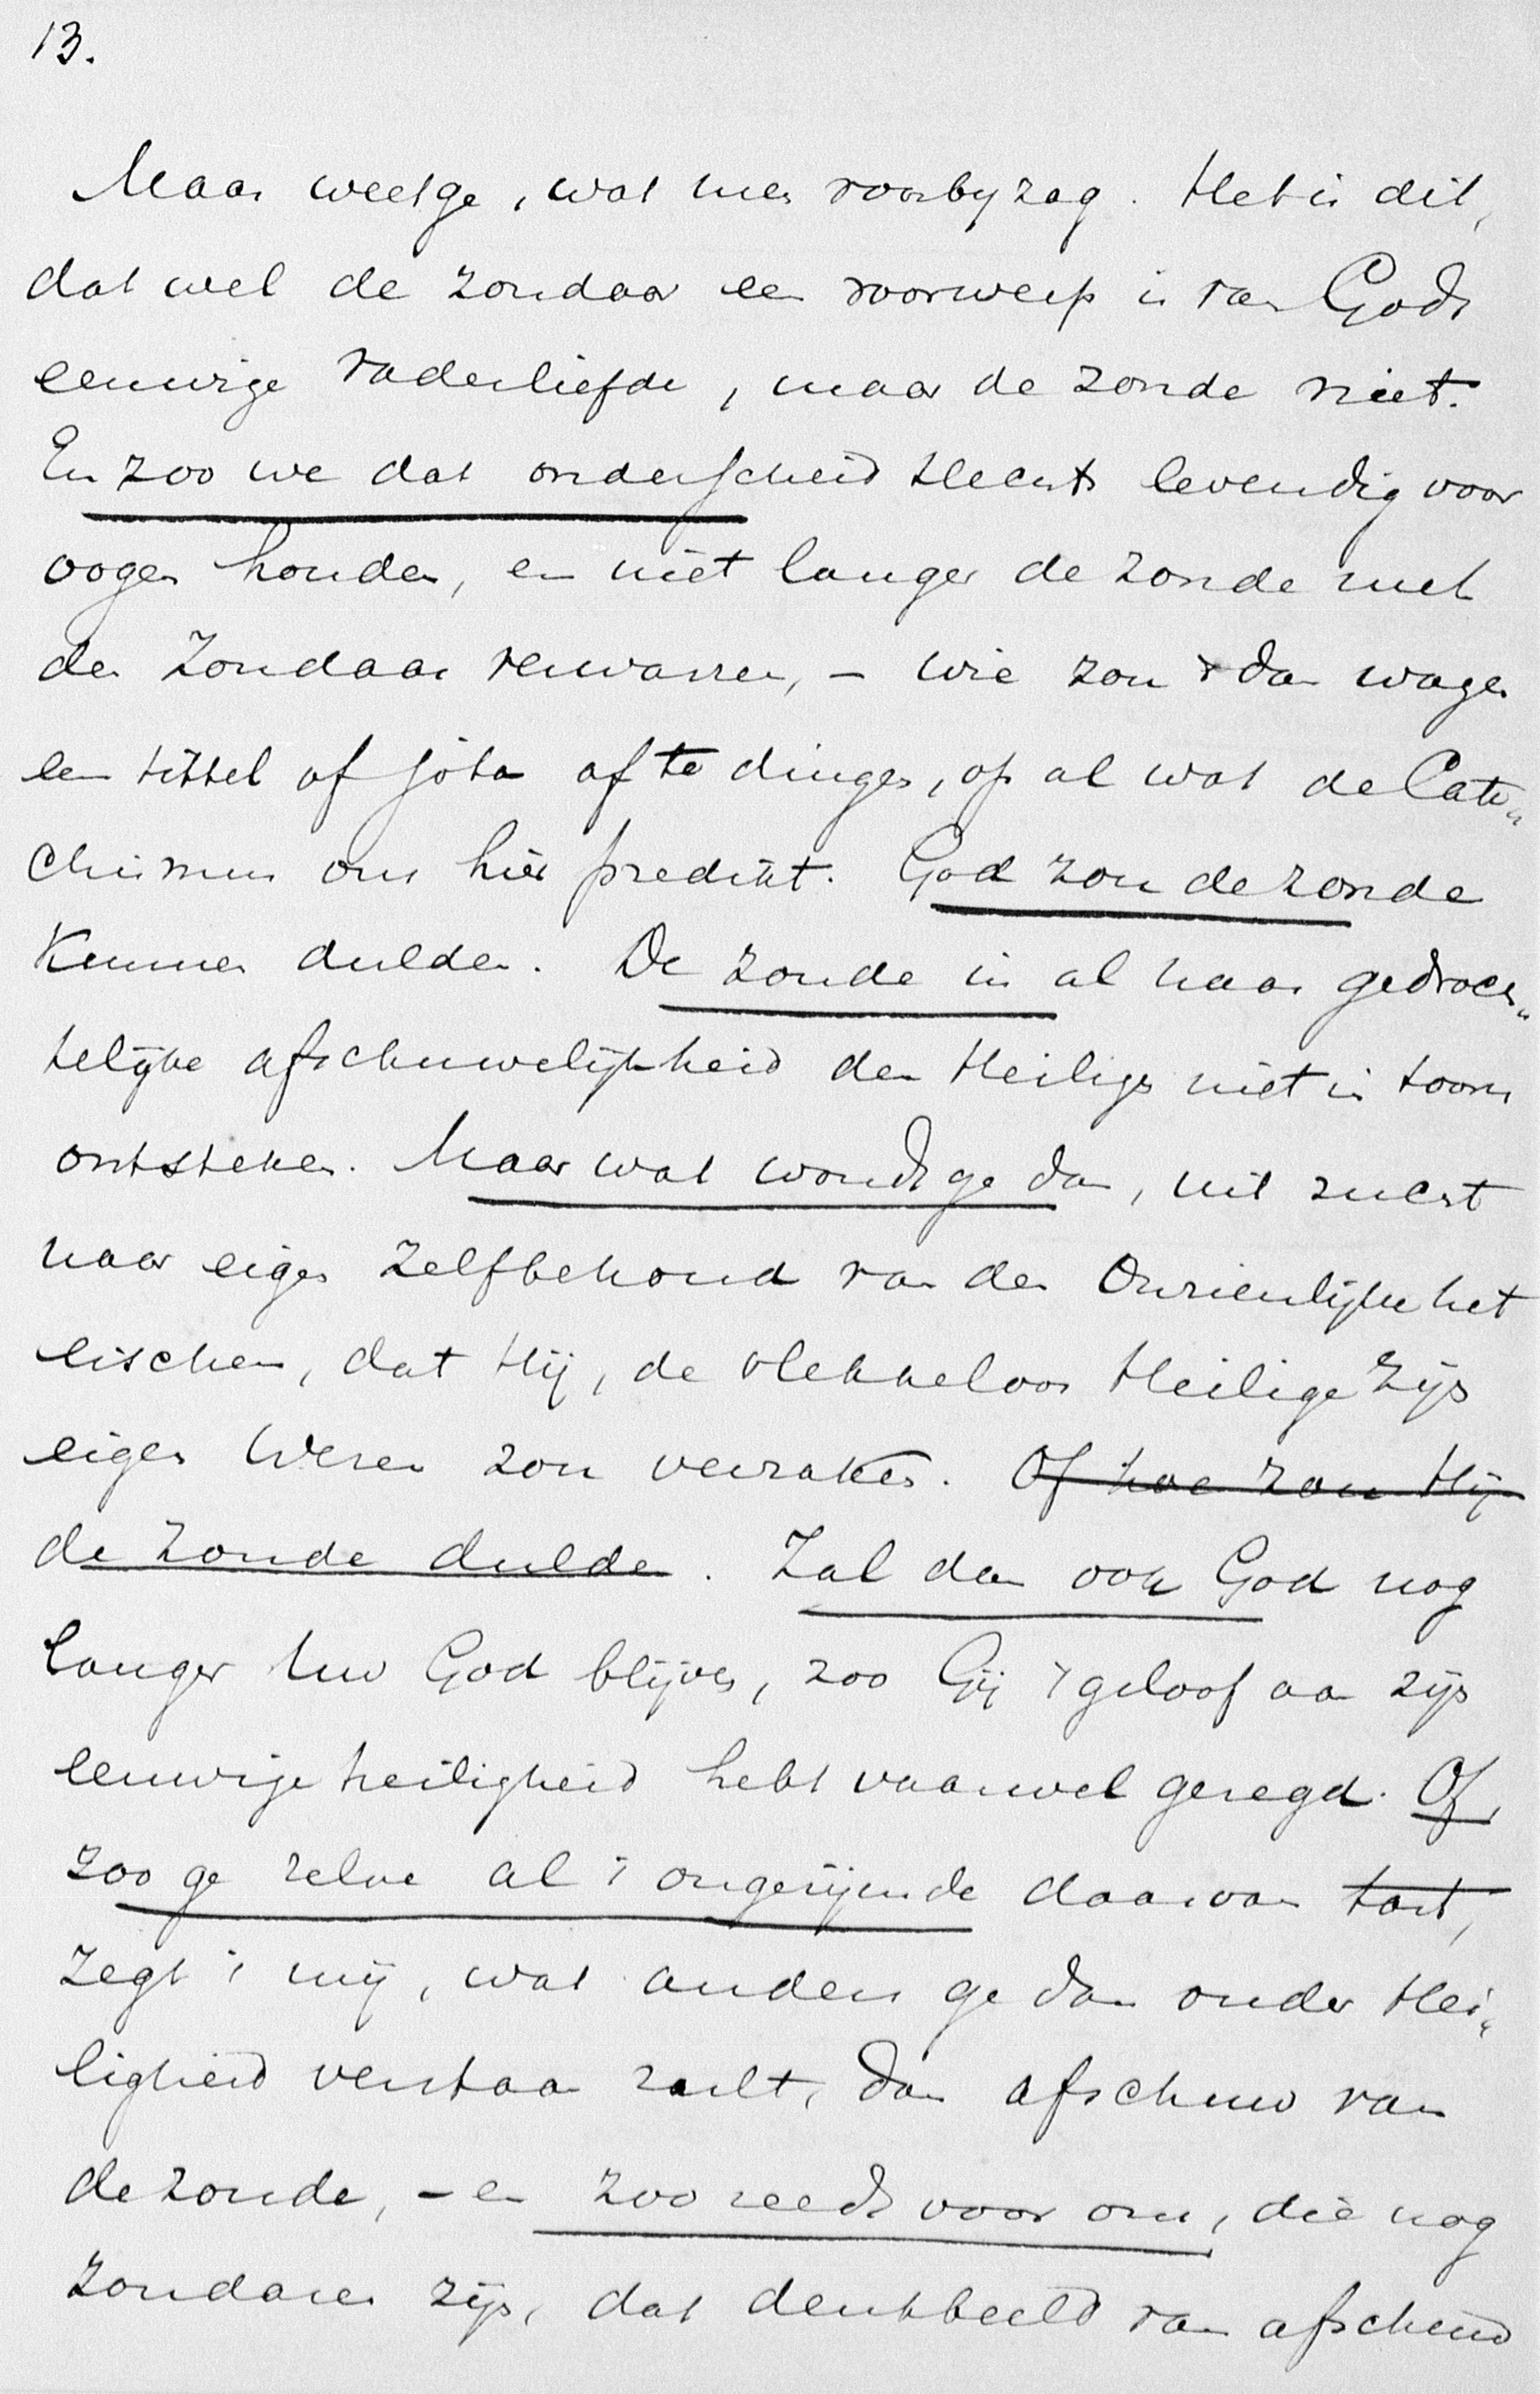 13.
Maar weetge, wat men voorbyzag. Het is dit,
dat wel de zondaar een voorwerp is van Gods
eeuwige vaderliefde, maar de zonde niet.
En zoo we dat onderscheid slechts levendig voor
oogen houden, en niet langer de zonde met
den Zondaar verwarren, – wie zou 't dan wagen
een tittel of jota af te dingen, op al wat de Cate„
chismus ons hier predikt. God zou de zonde
kunnen dulden. De zonde in al haar gedroch„
telijke afschuwelijkheid den Heilige niet in toorn
ontsteken. Maar wat wondt ge dan, uit zucht
naar eigen zelfbehoud van den Onzienlijke het
eischen, dat Hij, de vlekkeloos Heilige Zijn
eigen Wezen zou verzaken. Of hoe zou Hij
de zonde dulden. Zal dan ook God nog
langer Uw God blijven, zoo Gij 't geloof aan zijn
eeuwige heiligheid hebt vaarwel gezegd. Of,
zoo ge zelve al 't ongerijmde daarvan tast,
zegt 't mij, wat anders ge dan onder Hei„
ligheid verstaan zult, dan afschuw van
de zonde, – en zoo reeds voor ons, die nog
zondaren zijn, dat denkbeeld van afscheid